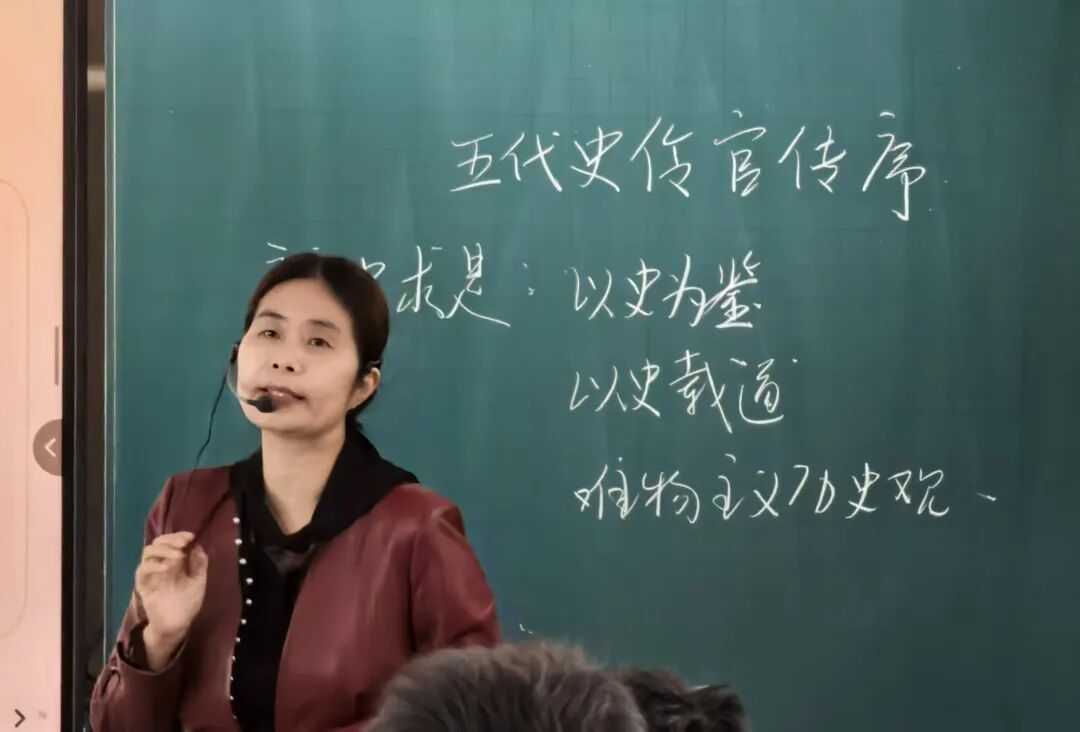 五代史伶官传序
求是：以史为鉴
以史载道
唯物主义历史观、